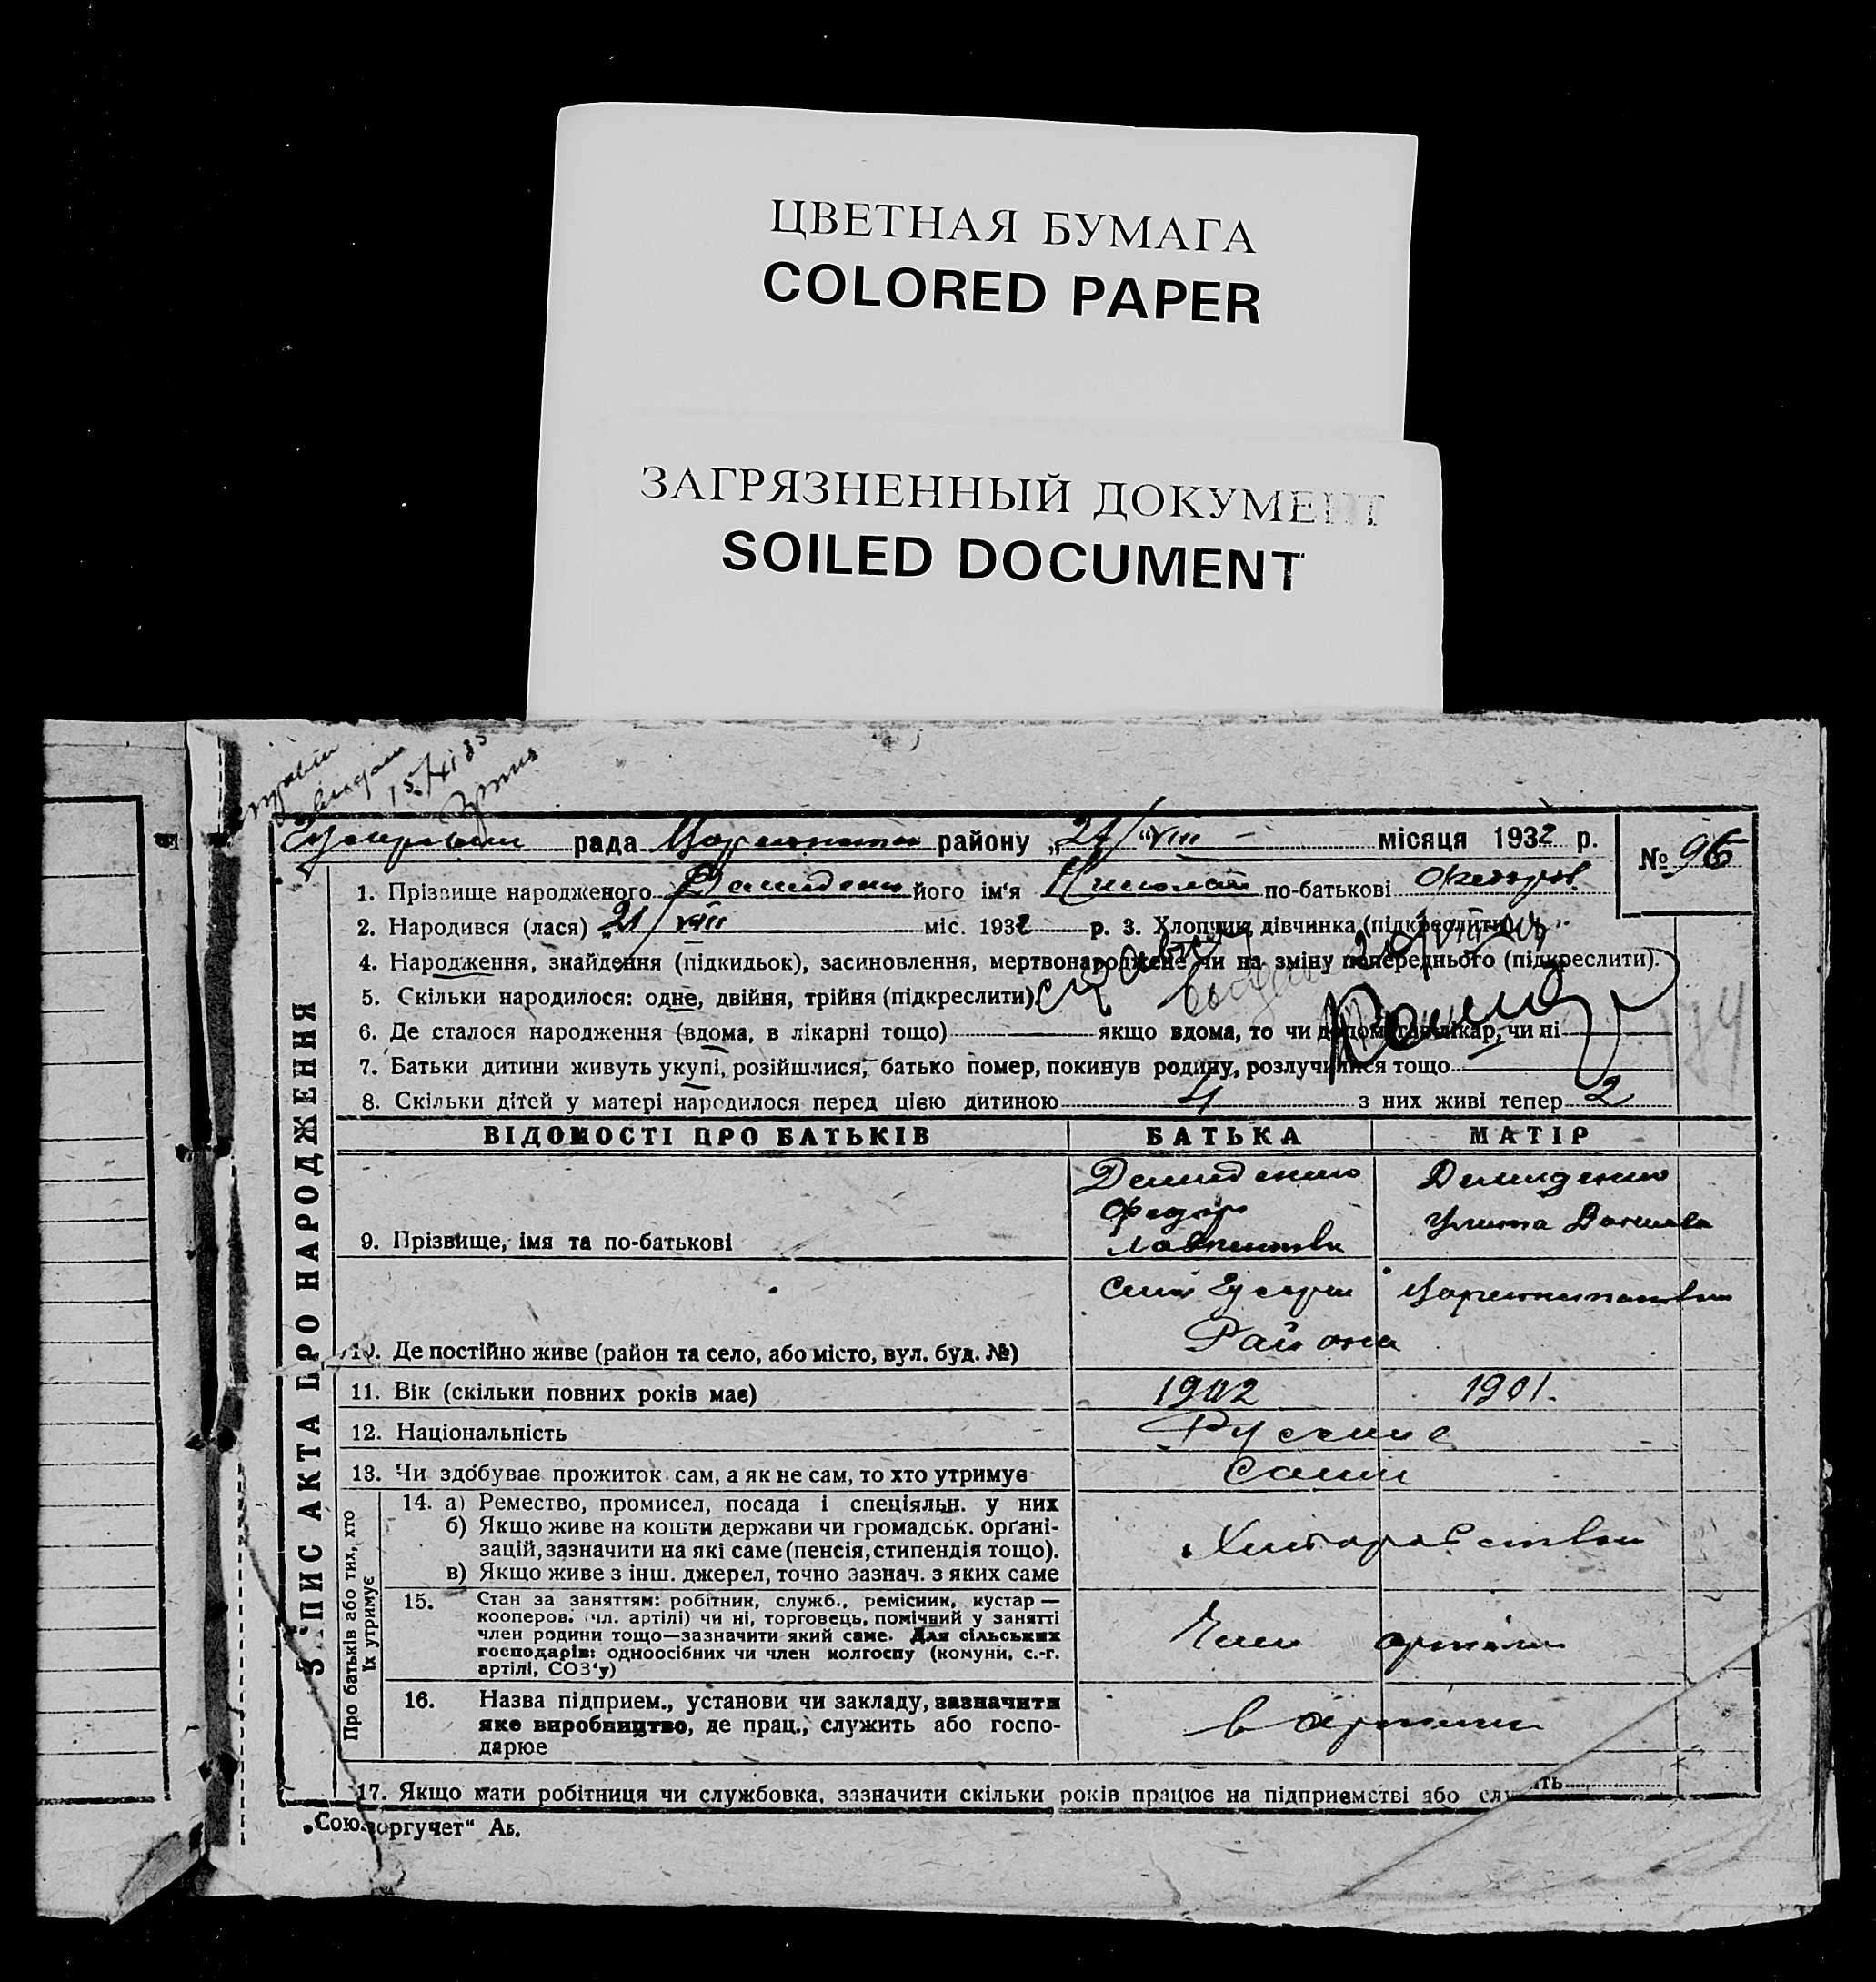 ЦВЕТНАЯ БУМАГА
COLORED PAPER
ЗАГРЯЗНЕННЫЙ ДОКУМЕНТ
SOILED DOCUMENT
15/XI 35
рада району „21/“ VIII — місяця 1932 р.
№ 96
ЗАПИС АКТА ПРО НАРОДЖЕННЯ
1. Прізвище народженого Демиденко його ім‘я Николай по-батькові Федоров
2. Народився (лася) „21/VIII міс. 1932 р. 3. Хлопчик, дівчинка (підкреслити).
4. Народження, знайдення (підкидьок), засиновлення, мертвонароджене чи на зміну попереднього (підкреслити).
5. Скільки народилося: одне, двійня, трійня (підкреслити)
6. Де сталося народження (вдома, в лікарні тощо) якщо вдома, то чи допомагав лікар, чи ні
7. Батьки дитини живуть укупі, розійшлися, батько помер, покинув родину, розлучилися тощо
8. Скільки дітей у матері народилося перед цією дитиною 4 з них живі тепер 2
ВІДОМОСТІ ПРО БАТЬКІВ БАТЬКА МАТІР
9. Прізвище, імя та по-батькові
Демиденко
Федор
Демиденко
10. Де постійно живе (район та село, або місто, вул. буд. №)
Района
11. Вік (скільки повних років має) 1902 1901.
12. Національність Русские
13. Чи здобуває прожиток сам, а як не сам, то хто утримує сами
Про батьків або тих, хто
їх утримує
14. а) Ремество, промисел, посада і спеціяльн. у них
б) Якщо живе на кошти держави чи громадськ. орґані-
зацій, зазначити на які саме (пенсія, стипендія тощо).
в) Якщо живе з інш. джерел, точно зазнач. з яких саме
15. Стан за заняттям: робітник, служб., ремісник, кустар —
кооперов. (чл. артілі) чи ні, торговець, помічний у занятті
член родини тощо—зазначити який саме. Для сільських
господарів: одноосібних чи член колгоспу (комуни, с.-г.
артілі, СОЗ‘у)
Член артели
16. Назва підприєм., установи чи закладу, зазначити
яке виробництво, де прац., служить або госпо-
дарює
в артели
17. Якщо мати робітниця чи службовка, зазначити скільки років працює на підприємстві або
„Союзоргучет“